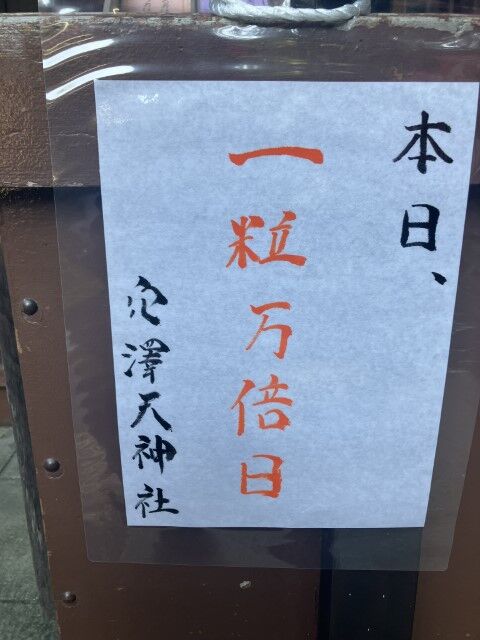 本日、
一粒万倍日
穴澤天神社